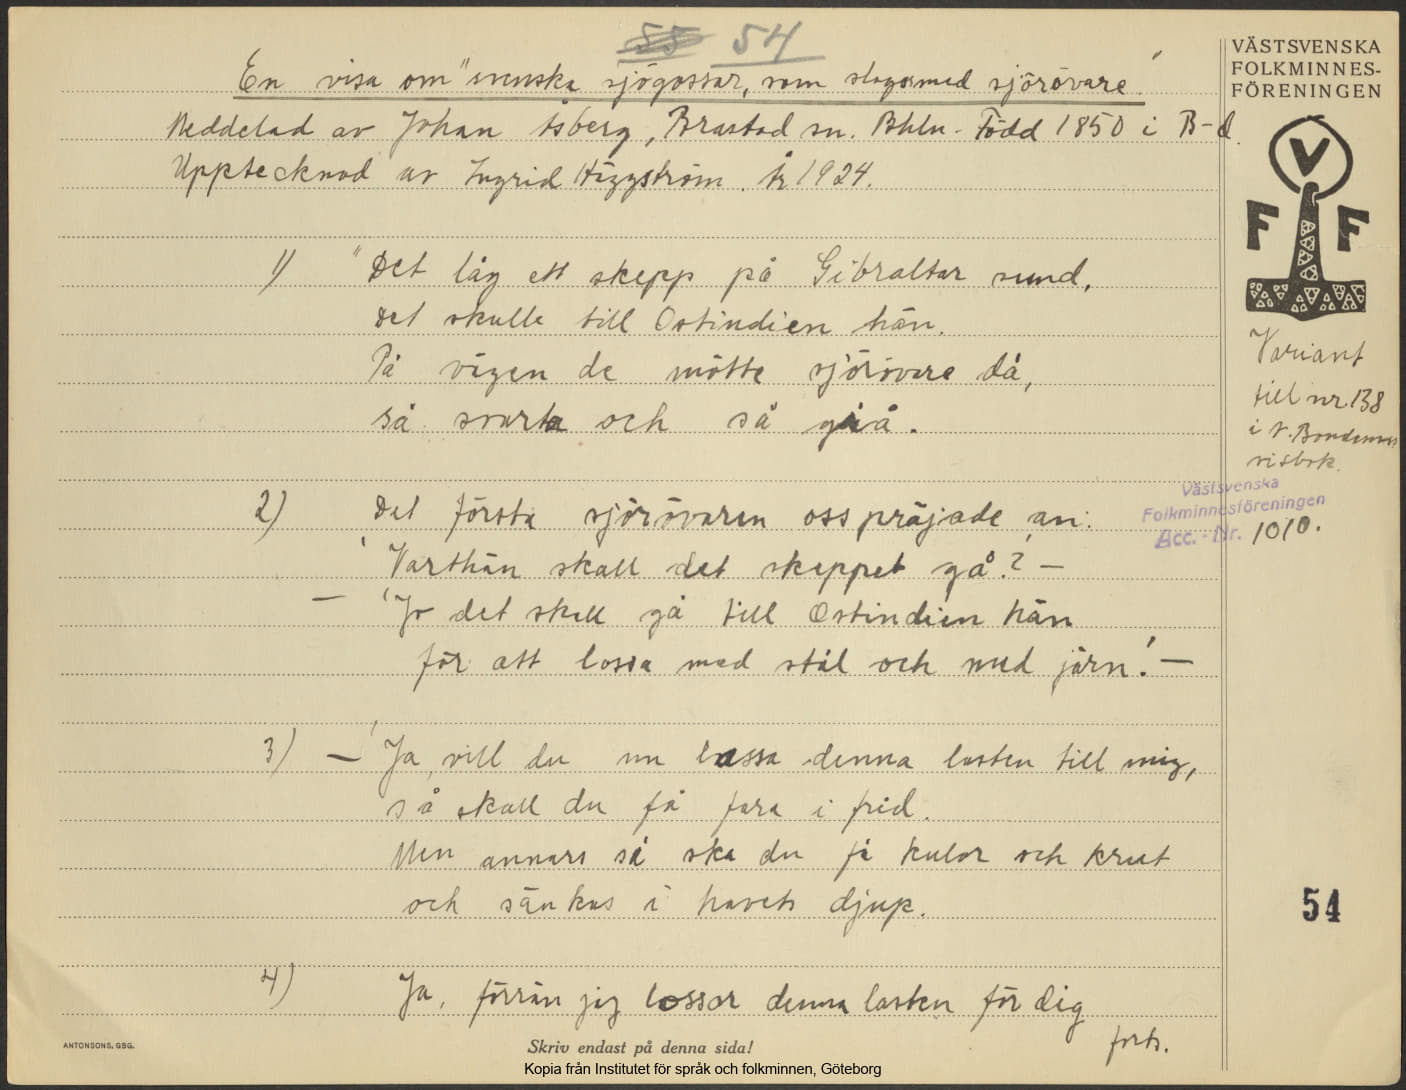 54
En visa om "svenska sjögossar, som slogos med sjörövare".
Meddelad av Johan Åsberg, Brastad sn. Bhln. Född 1850 i B-d.
Upptecknad av Ingrid Häggström. År 1924.
1) "Det låg ett skepp på Gibraltar sund,
Det skulle till Ostindien hän.
På vägen de mötte sjörövare då,
så svarta och så grå.
2) Det första sjörövaren oss präjade an:
'Varthän skall det skeppet gå?' —
— 'Jo det skall gå till Ostindien hän
för att lossa med stål och med järn!' —
3) — 'Ja, vill du nu lossa denna lasten till mig,
så skall du få fara i frid.
Men annars så ska du få kulor och krut
och sänkas i havets djup.
4) Ja, förrän jag lossar denna lasten för dig
forts.
VÄSTSVENSKA
FOLKMINNES-
FÖRENINGEN
V
F F
Variant
till nr 138
i
visbok.
Västsvenska
Folkminnesföreningen
Acc. - Nr. 1010.
54
ANTONSONS, GBG.
Skriv endast på denna sida!
Kopia från Institutet för språk och folkminnen, Göteborg